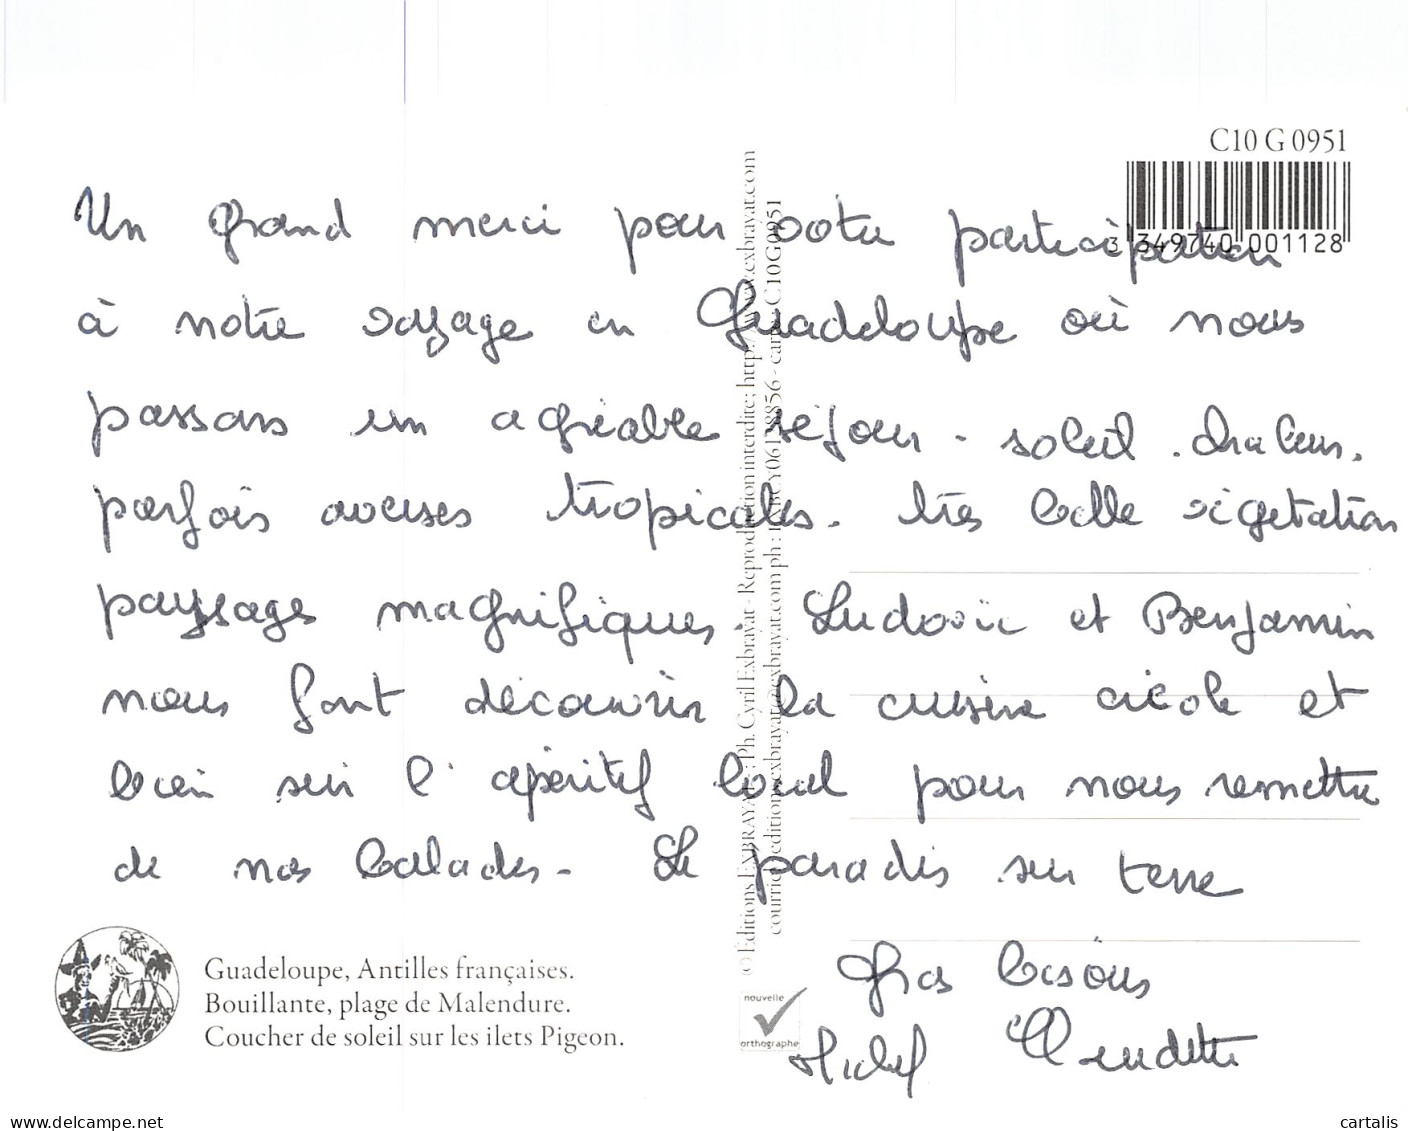 C10 G 0951
3 349740 001128
Un grand merci pour votre participation
à notre voyage en Guadeloupe où nous
passons un agréable séjour - soleil . chaleur .
parfois averses tropicales. très belle végétation
paysages magnifiques. Ludovic et Benjamin
nous font découvrir la cuisine créole et
bien sur l'apéritif local pour nous remettre
de nos balades - Le paradis sur terre
Gros bisous
Michel
Guadeloupe, Antilles françaises.
Bouillante, plage de Malendure.
Coucher de soleil sur les ilets Pigeon.
nouvelle
orthographe
© Éditions EXBRAYAT - Ph. Cyril Exbrayat - Reproduction interdite; exbrayat.com
C10G0951
delcampe.net
cartalis